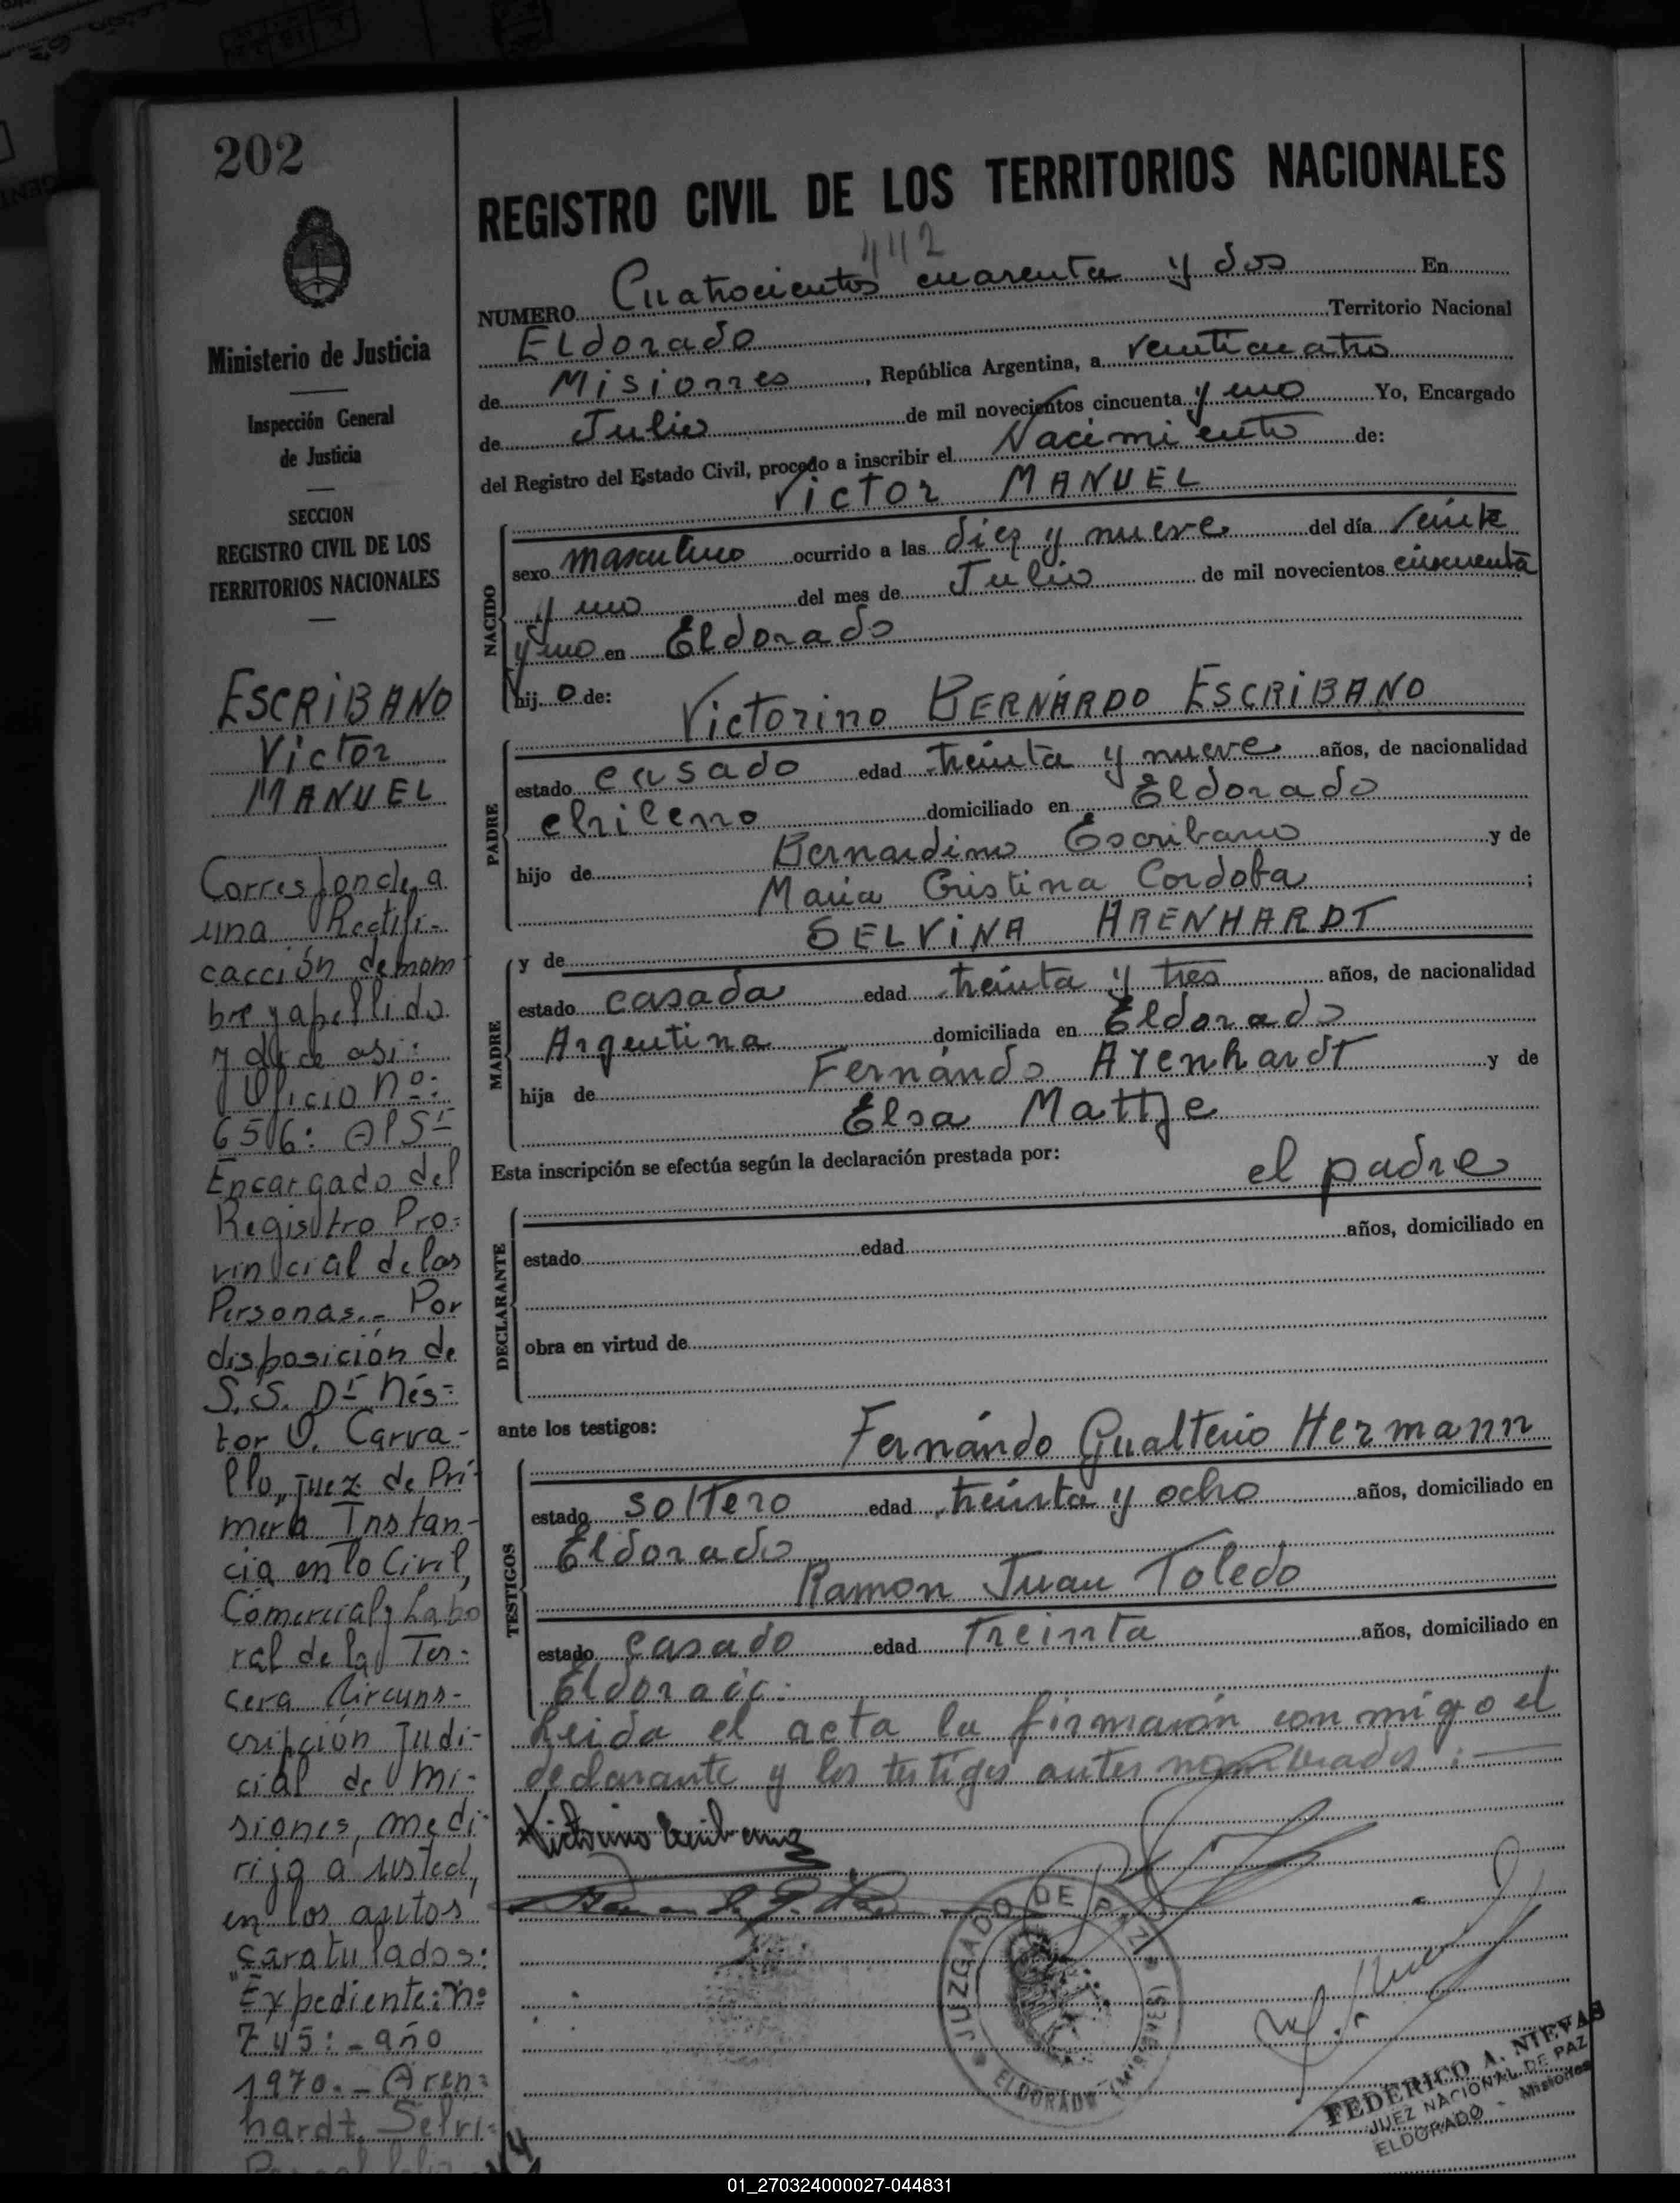 202
Ministerio de Justicia
Inspección General
de Justicia
SECCION
REGISTRO CIVIL DE LOS
TERRITORIOS NACIONALES
ESCRIBANO
Victor
MANUEL
Corresponde a
una Rectifi-
cacción de nom
bre y apellido
y dice asi:
Oficio nº:
656:
Encargado del
Registro Pro-
vincial de las
Personas.- Por
disposición de
S.S. Dr Nés-
tor O. Carva-
llo, juez de Pri-
mera Instan-
cia en lo Civil,
Comercial y Labo
ral de la Ter-
cera Circuns-
cripción Judi-
cial de Mi-
siones, me di-
rija a usted,
en los autos
caratulados:
"Expediente: nº
745:- año
1970.- Aren-
hardt Selvi-
REGISTRO CIVIL DE LOS TERRITORIOS NACIONALES
442
NUMERO Cuatrocientos cuarenta y dos En
Eldorado Territorio Nacional
de Misiones, República Argentina, a veinticuatro
de Julio de mil novecientos cincuenta y uno Yo, Encargado
del Registro del Estado Civil, procedo a inscribir el Nacimiento de:
Victor MANUEL
NACIDO
sexo masculino ocurrido a las diez y nueve del día veinte
y uno del mes de Julio de mil novecientos cincuenta
y uno en Eldorado
hij o de:
Victorino BERNARDO ESCRIBANO
PADRE
estado casado edad treinta y nueve años, de nacionalidad
chileno domiciliado en Eldorado
hijo de Bernardino Escribano y de
Maria Cristina Cordoba ;
y de SELVINA ARENHARDT
MADRE
estado casada edad treinta y tres años, de nacionalidad
Argentina domiciliada en Eldorado
hija de Fernándo Arenhardt y de
Elsa Mattje
Esta inscripción se efectúa según la declaración prestada por:
el padre
DECLARANTE
estado edad años, domiciliado en
obra en virtud de
ante los testigos:
Fernándo Gualterio Hermann
TESTIGOS
estado soltero edad treinta y ocho años, domiciliado en
Eldorado
Ramon Juan Toledo
estado casado edad Treinta años, domiciliado en
Eldorado.
Leida el acta la firmarón con migo el
declarante y los testigos antes nombrados:
JUZGADO DE PAZ
ELDORADO (MISIONES)
FEDERICO A. NIEVAS
JUEZ NACIONAL DE PAZ
ELDORADO - Misiones
01_270324000027-044831